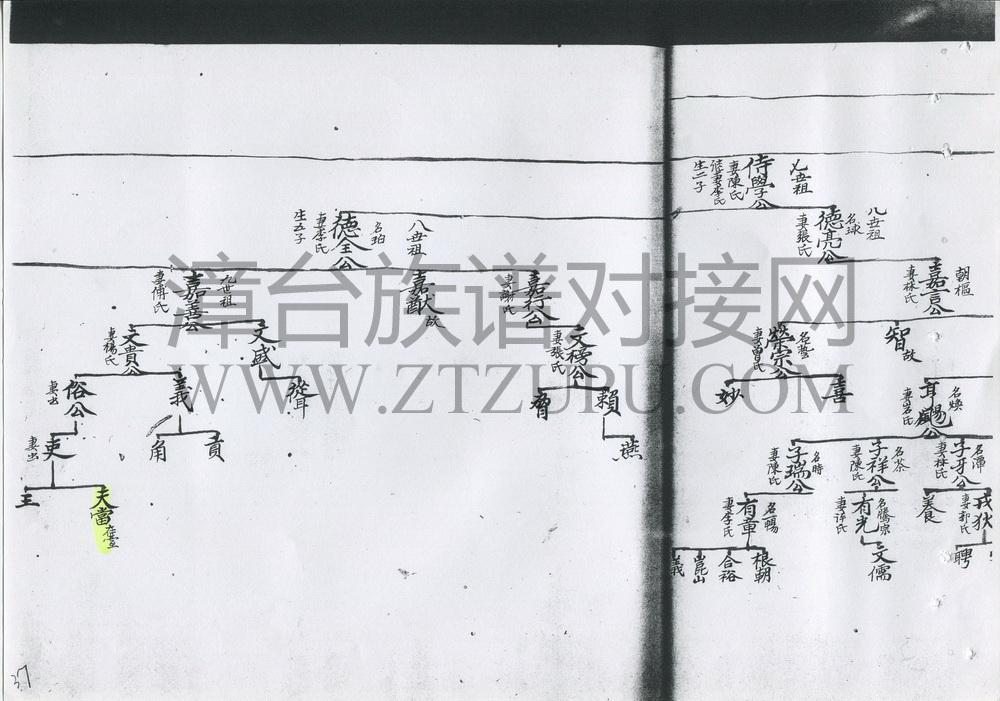 七世祖
侍學公
妻陳氏
繼妻李氏
生二子
八世祖
名球
德亮公
妻張氏
八世祖
名珀
德全公
妻李氏
生五子
朝樞
嘉言公
妻林氏
嘉行公
妻謝氏
嘉猷
故
九世祖
嘉善公
妻傅氏
智
故
榮宗公
妻曾氏
文穆公
妻張氏
文盛
文貴公
妻楊氏
名煥
喜
妙
賴
從耳
義
俗公
妻出
名潭
子牙公
妻林氏
名茶
子祥公
妻陳氏
名時
子瑞公
妻陳氏
燕
貢
角
吏
妻出
戎狄
妻郭氏
養
名騰宗
有光
妻许氏
名暘
有章
妻李氏
天當
在臺
王
聘
文儒
根朝
合裕
崑山
義
漳台族谱对接网
WWW.ZTZUPU.COM
37